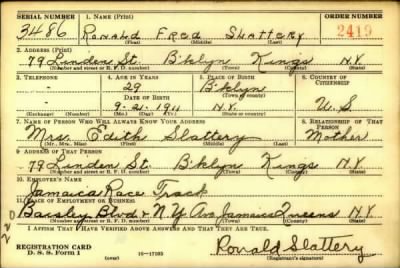 SERIAL NUMBER 1. NAME (Print) ORDER NUMBER
3486 RONALD FRED SLATTERY 2419
(First) (Middle) (Last)
2. ADDRESS (Print)
79 Linden St. B'klyn Kings N.Y.
(Number and street or R. F. D. number) (Town) (County) (State)
3. TELEPHONE 4. AGE IN YEARS 5. PLACE OF BIRTH 6. COUNTRY OF CITIZENSHIP
29 B'klyn
DATE OF BIRTH (Town or county)
9-21-1911 N.Y. U.S
(Mo.) (Day) (Yr.) (State or country)
7. NAME OF PERSON WHO WILL ALWAYS KNOW YOUR ADDRESS 8. RELATIONSHIP OF THAT PERSON
Mrs. Edith Slattery Mother
(Mr., Mrs., Miss) (First) (Middle) (Last)
9. ADDRESS OF THAT PERSON
79 Linden St. B'klyn Kings N.Y.
(Number and street or R. F. D. number) (Town) (County) (State)
10. EMPLOYER'S NAME
Jamaica Race Track
11. PLACE OF EMPLOYMENT OR BUSINESS
Baisley Blvd & N.Y Ave Jamaica Queens N.Y.
(Number and street or R. F. D. number) (Town) (County) (State)
I AFFIRM THAT I HAVE VERIFIED ABOVE ANSWERS AND THAT THEY ARE TRUE.
REGISTRATION CARD
D. S. S. Form 1 (over) 16—17105 Ronald Slattery
(Registrant's signature)